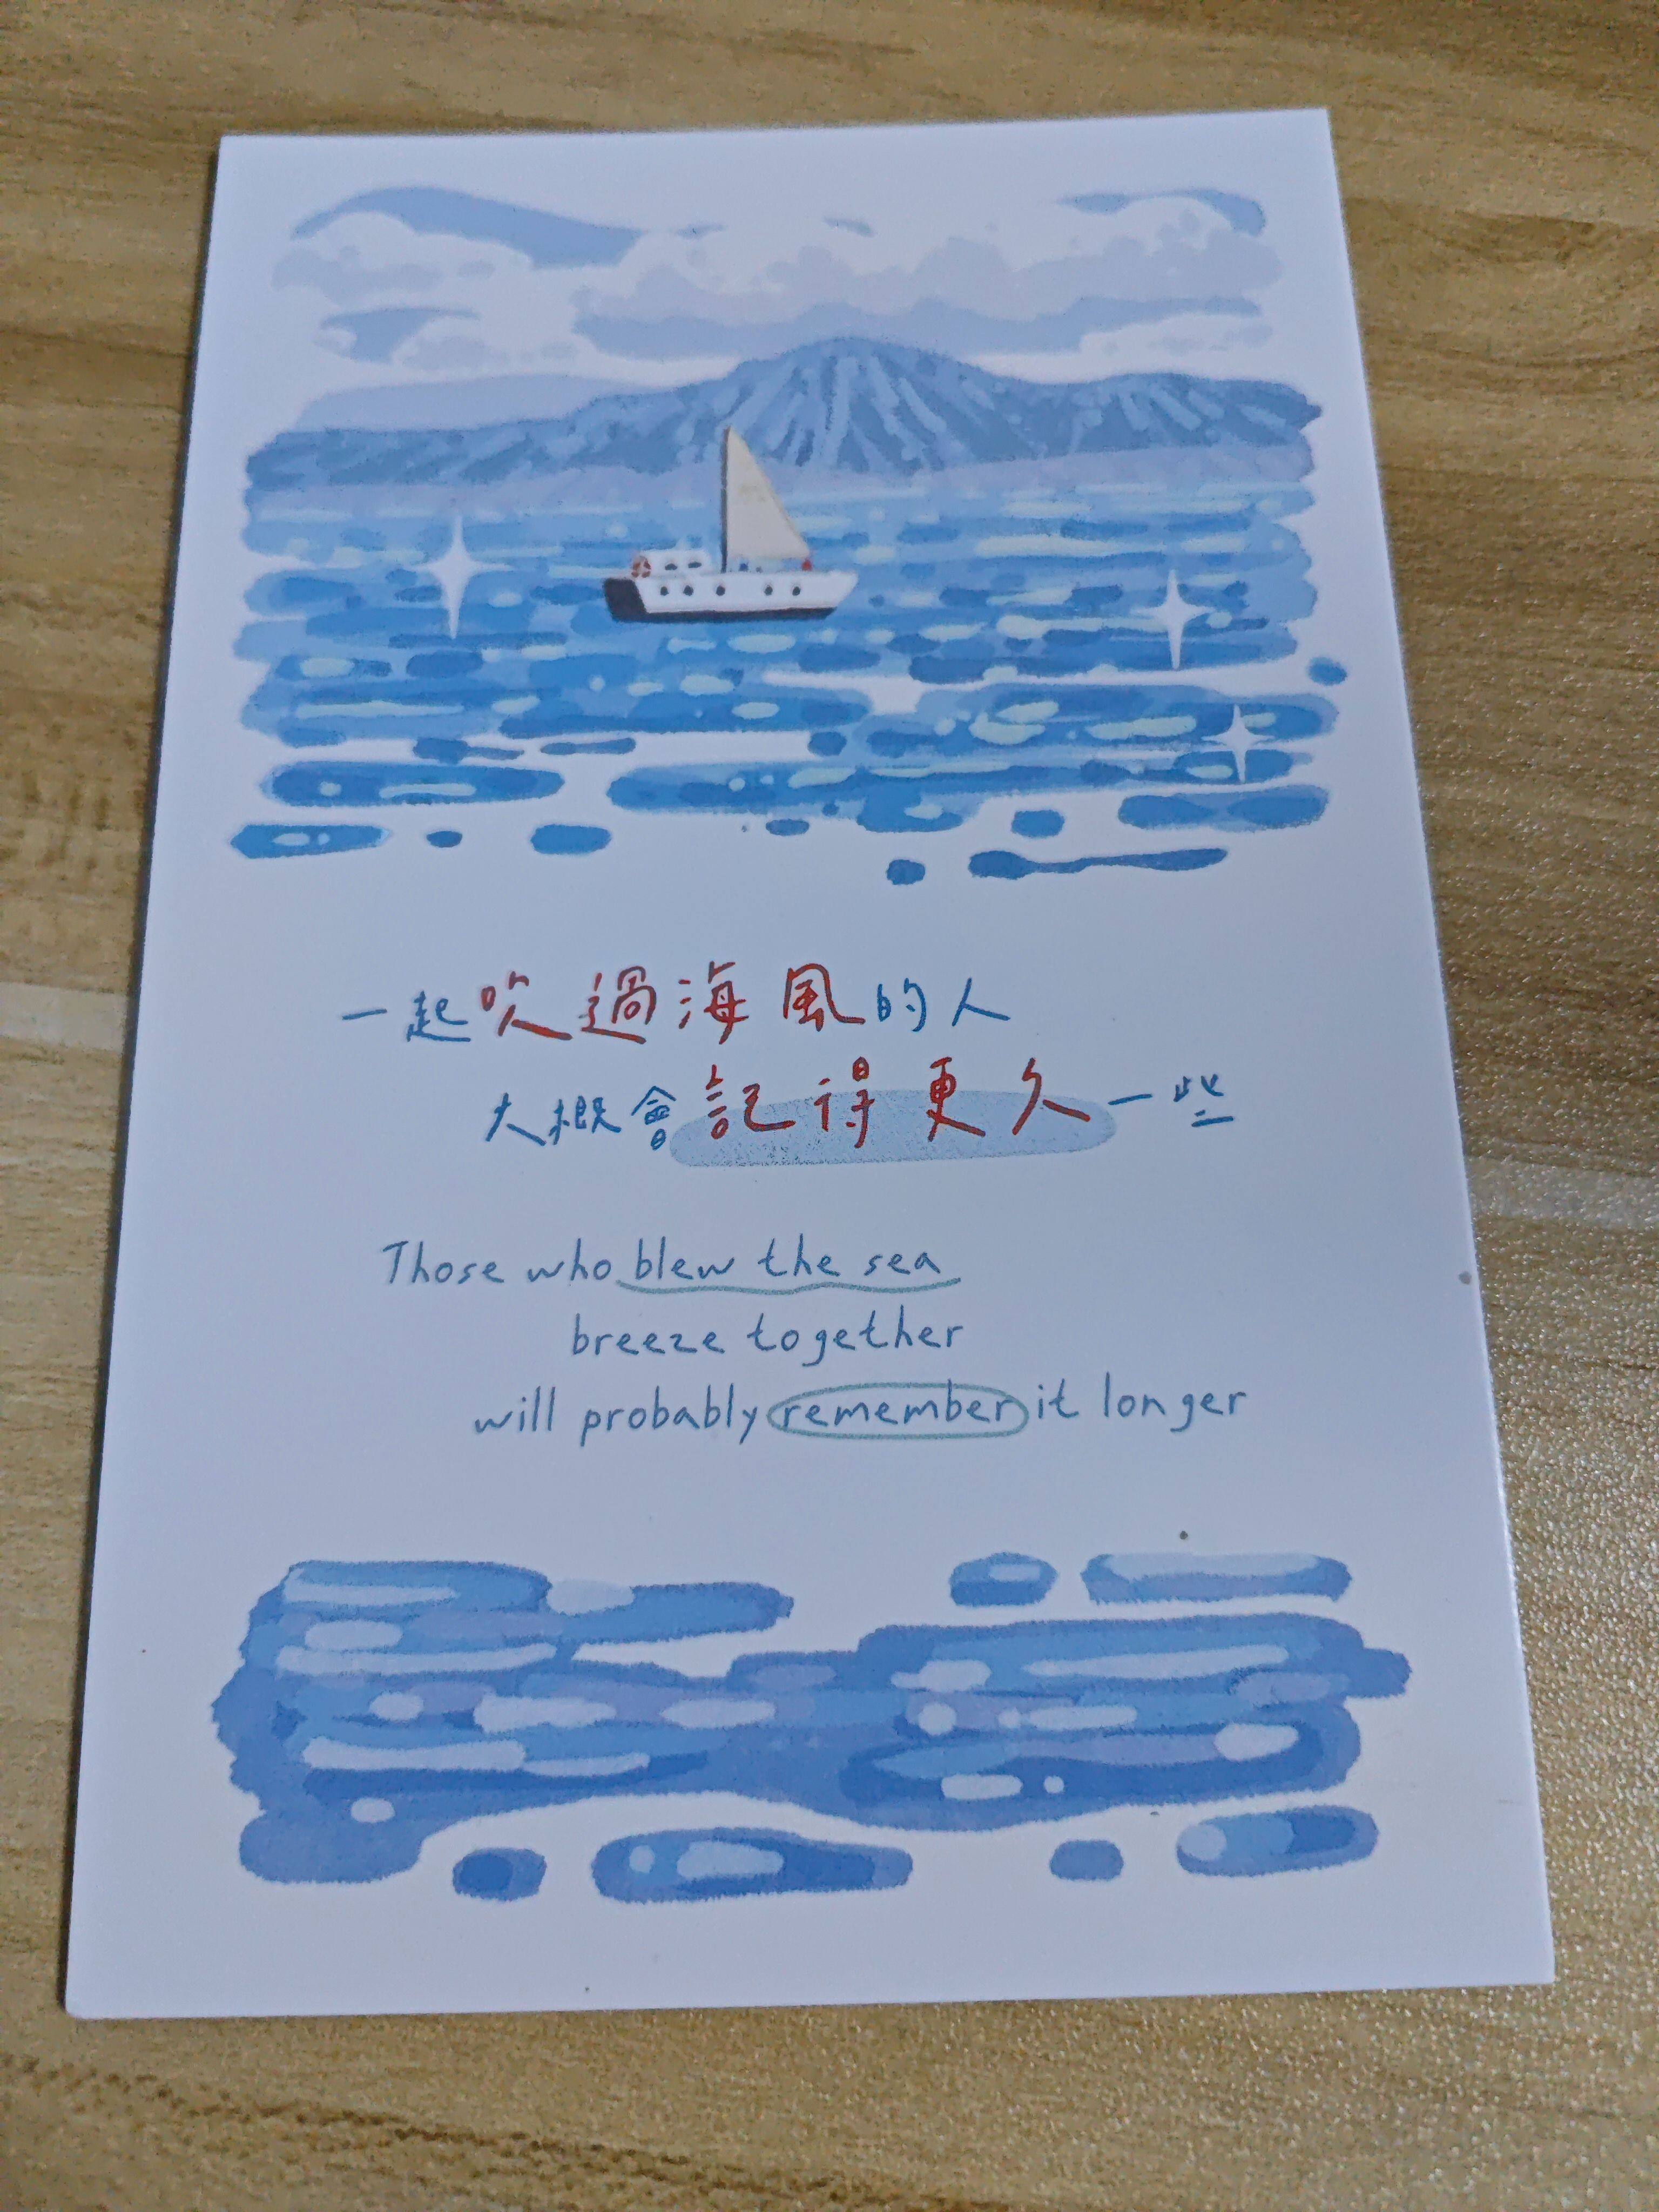 一起吹過海風的人
大概會記得更久一些
Those who blew the sea
breeze together
will probably remember it longer